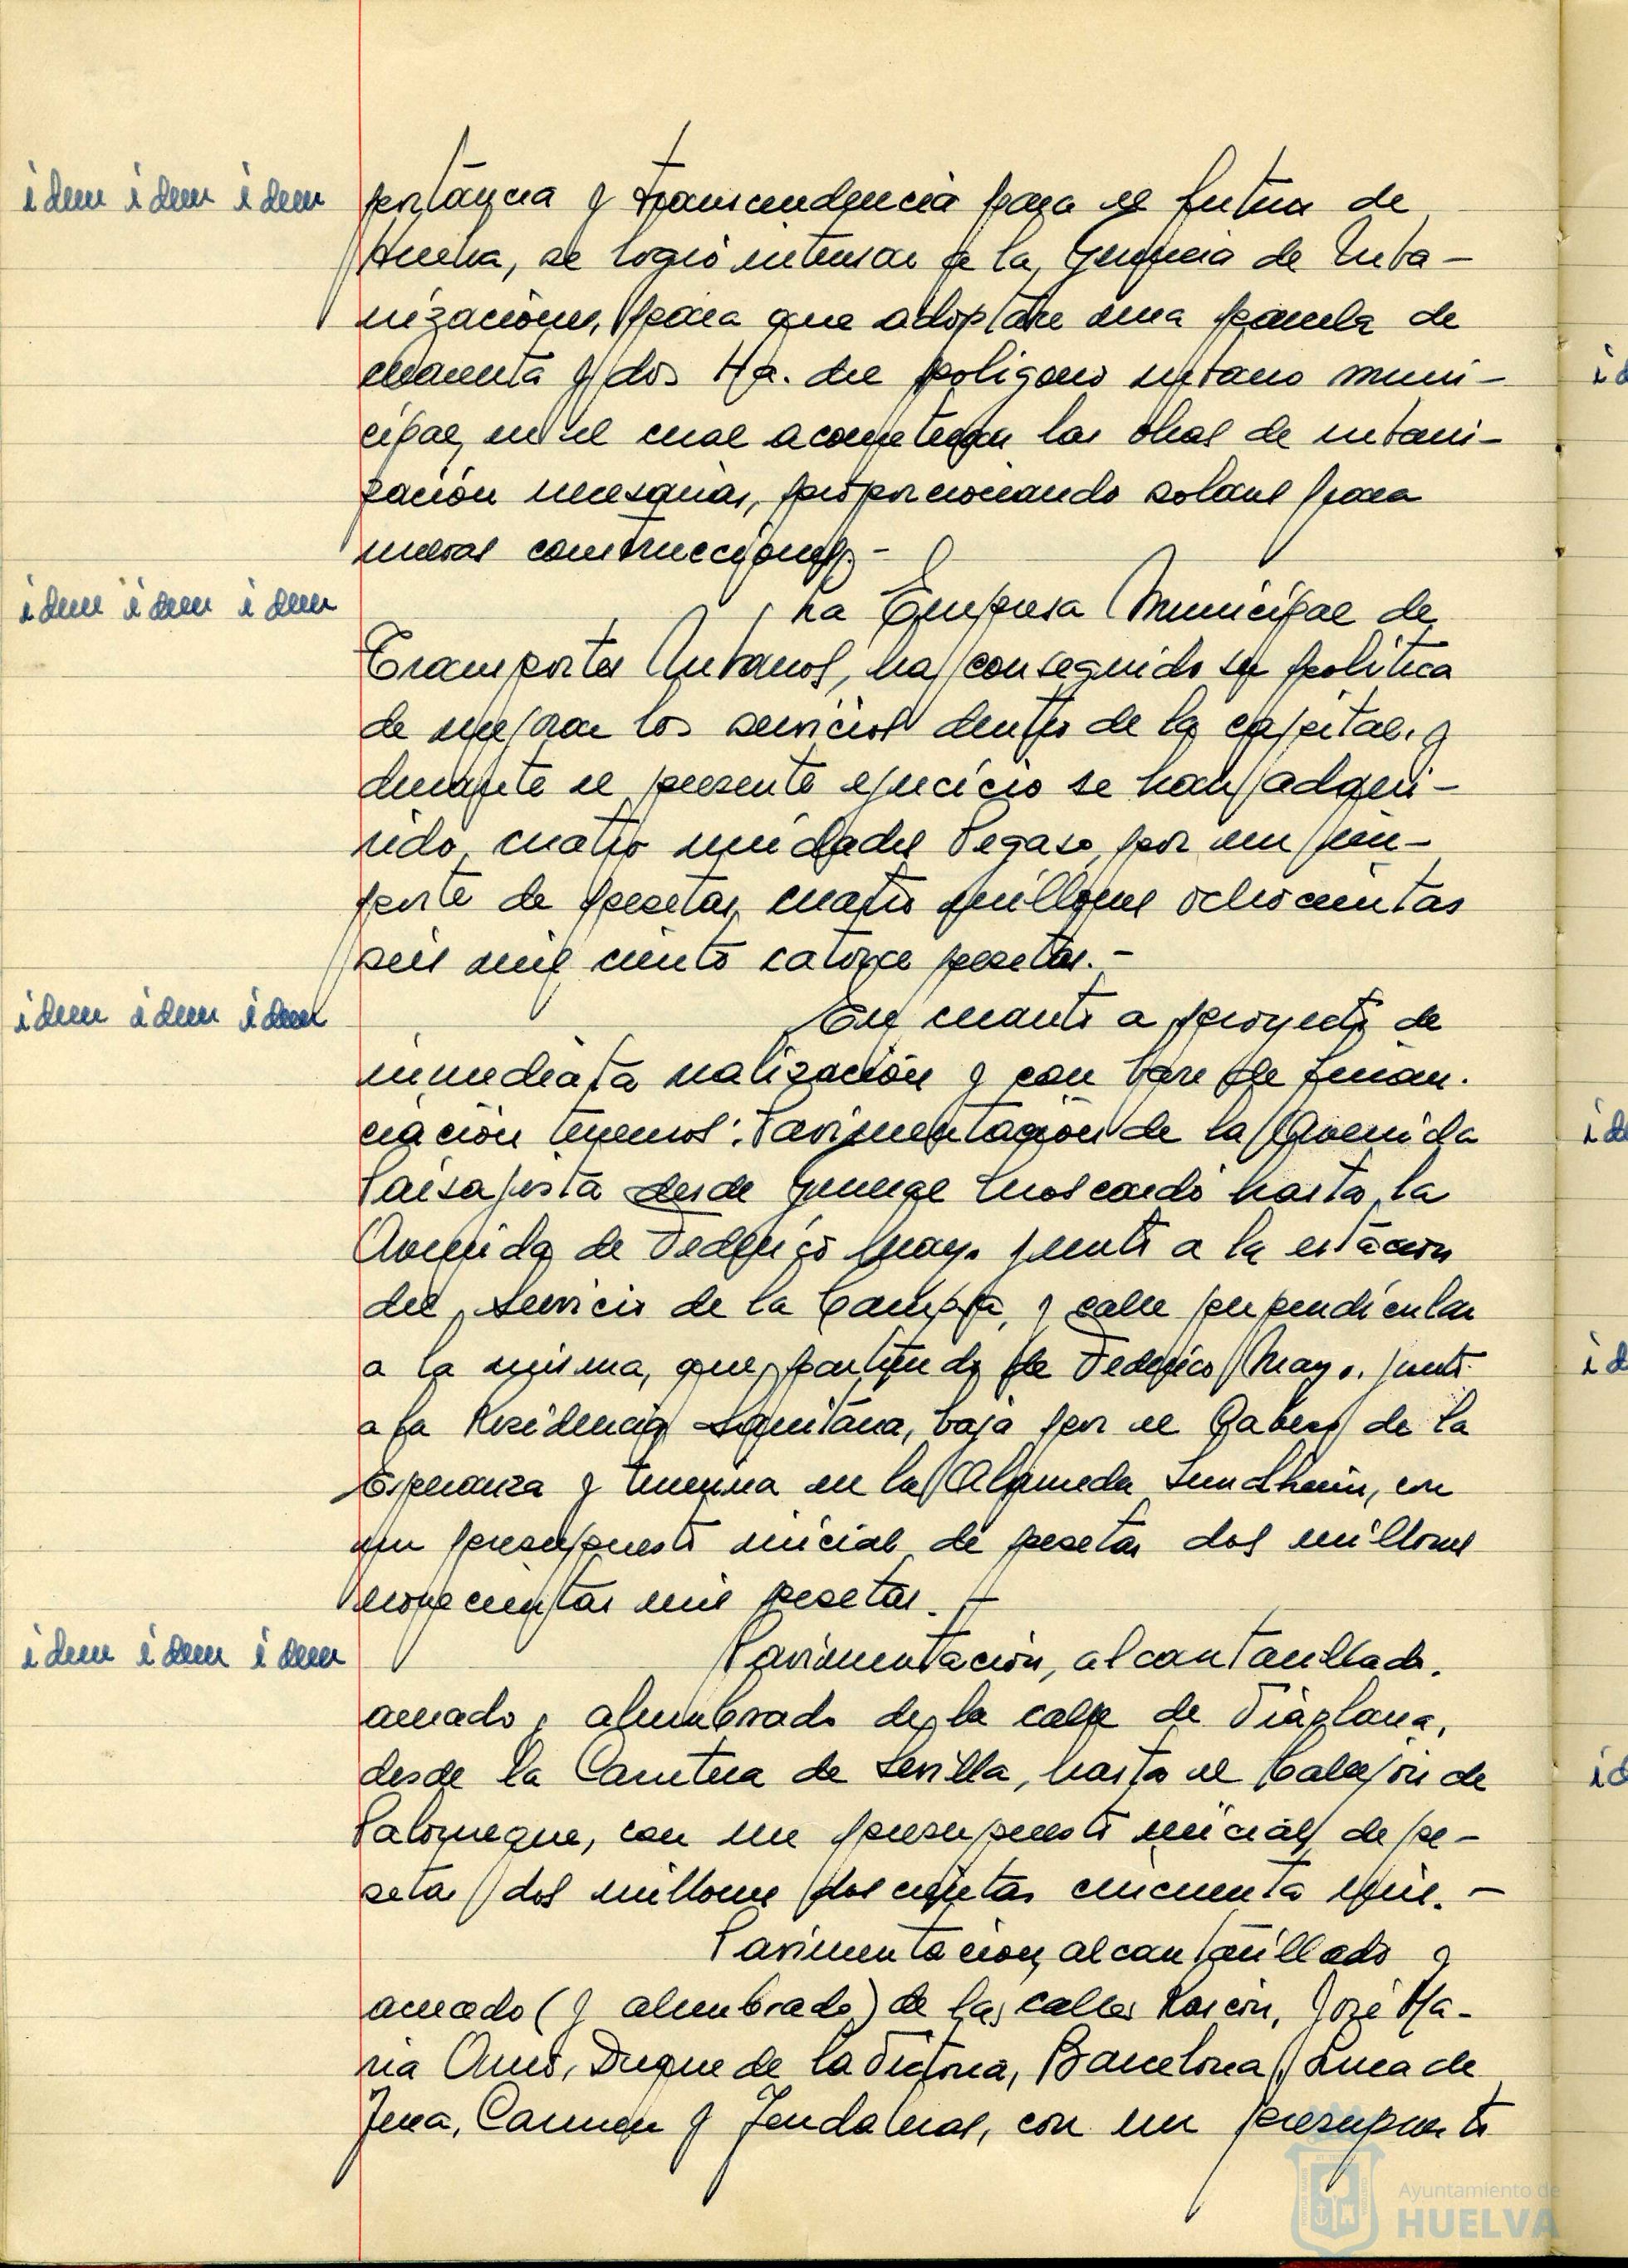 idem idem idem
portancia y transcendencia para el futuro de
Huelva, se logró interesar a la Gerencia de Urba-
nizaciones, para que adoptare una parcela de
cuarenta y dos Ha. del poligono urbano muni-
cipal, en el cual acometerán las obras de urbani-
zación necesarias, proporcionando solares para
nuevas construcciones.-
idem idem idem
La Empresa Municipal de
Transportes Urbanos, ha conseguido su politica
de mejorar los servicios dentro de la capital, y
durante el presente ejercicio se han adqui-
rido cuatro unidades Pegaso, por un im-
porte de pesetas, cuatro millones ochocientas
seis mil ciento catorce pesetas.-
idem idem idem
En cuanto a proyecto de
inmediata realización y con base de finan-
ciación tenemos: Pavimentación de la Avenida
Paisajista desde General Moscardó hasta la
Avenida de Federico Mayo. junto a la estación
del Servicio de la Campsa, y calle perpendicular
a la misma, que partiendo de Federico Mayo. junto
a la Residencia Sanitaria, baja por el Cabezo de la
Esperanza y termina en la Alameda Sundheim, con
un presupuesto inicial de pesetas dos millones
novecientas mil pesetas.-
idem idem idem
Pavimentación, alcantarillado.
acerado y alumbrado de la calle de Viaplana,
desde la Carretera de Sevilla, hasta el Callejón de
Palomeque, con un presupuesto inicial de pe-
setas dos millones doscientas cincuenta mil.-
Pavimentación, alcantarillado y
acerado (y alumbrado) de las calles Rascón, José Ma-
ria Amo, Duque de la Victoria, Barcelona, Luca de
Tena, Carmen y Fendaleras, con un presupuesto
id
id
id
id
Ayuntamiento de
HUELVA